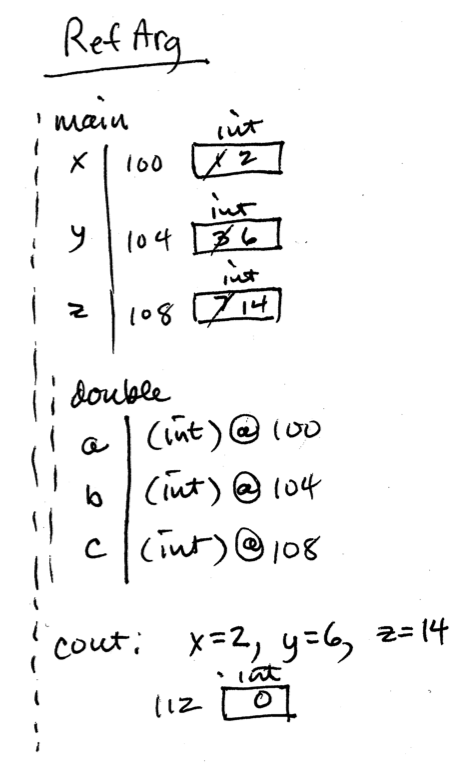 Ref Arg
main
int
x 100 1 2
int
y 104 3 6
int
z 108 7 14
double
a (int) @ 100
b (int) @ 104
c (int) @ 108
cout: x=2, y=6, z=14
int
112 0